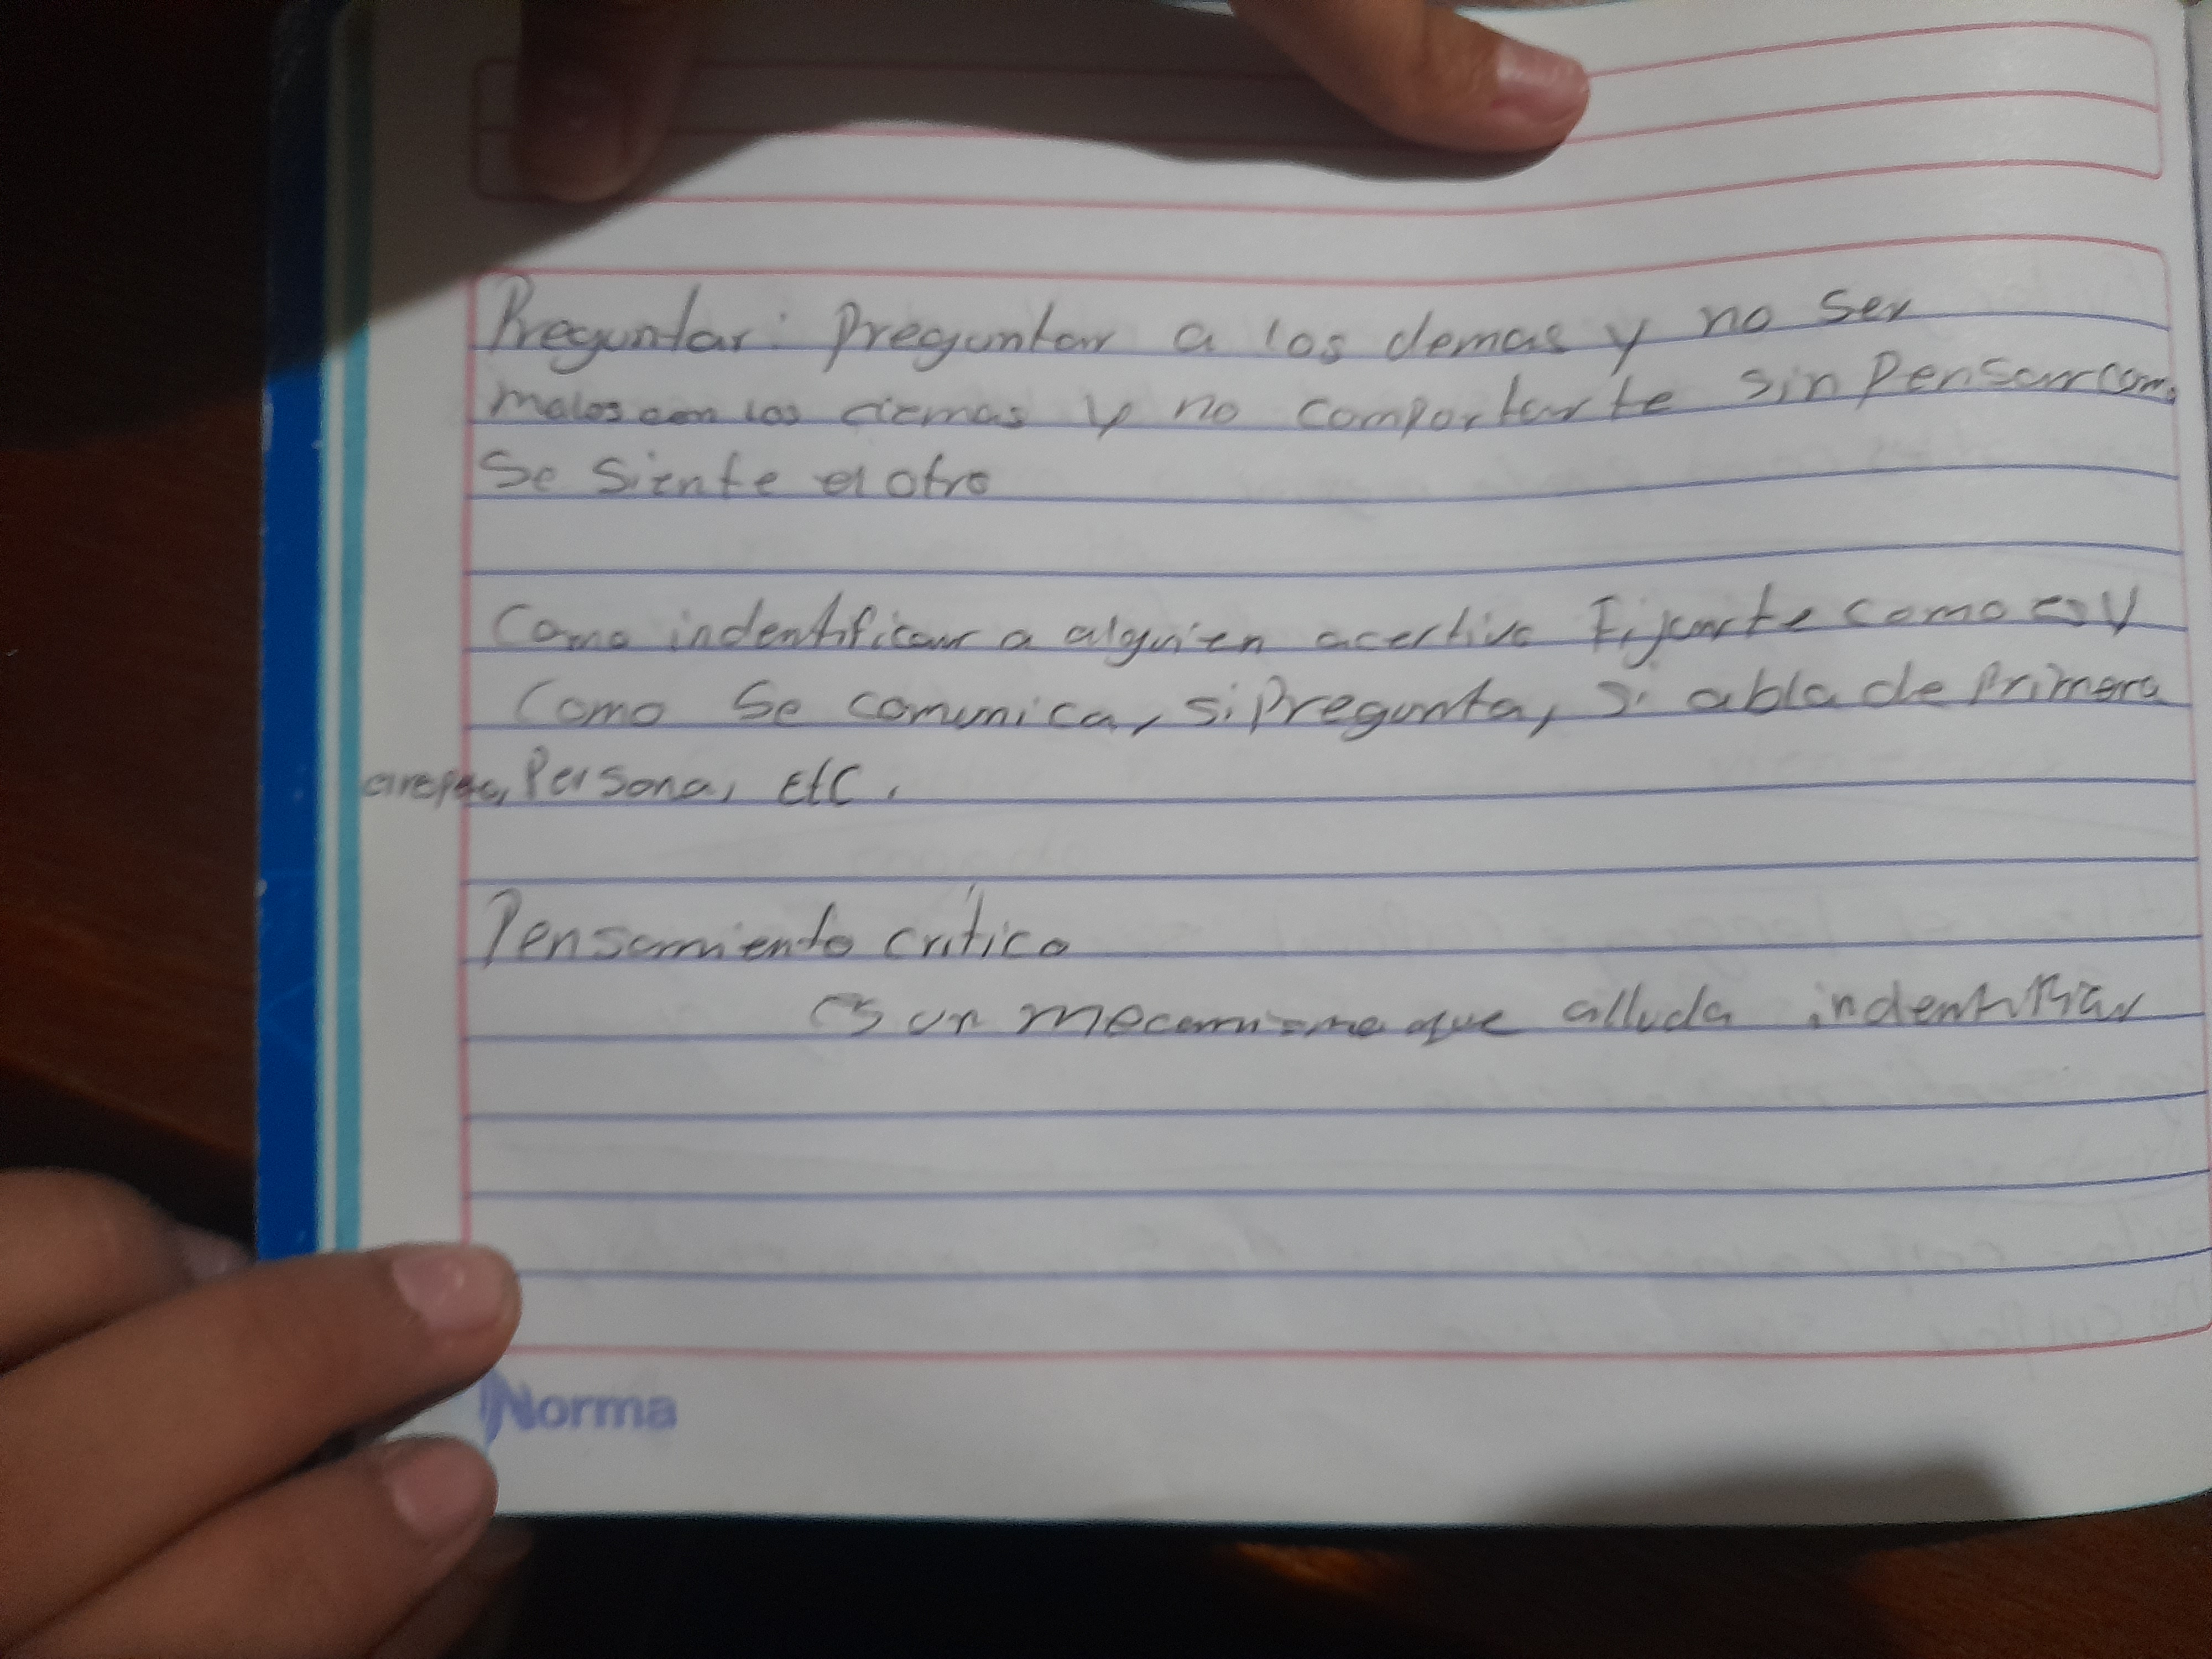 Preguntar: Preguntar a los demas y no ser
malos con los demas y no comportarte sin pensar como
se siente el otro
Como indentificar a alguien acertivo Fijarte como es y
Como se comunica, si pregunta, si abla de primera
Persona, Etc.
Pensamiento crítico
es un mecanismo que alluda indentifiar
Norma